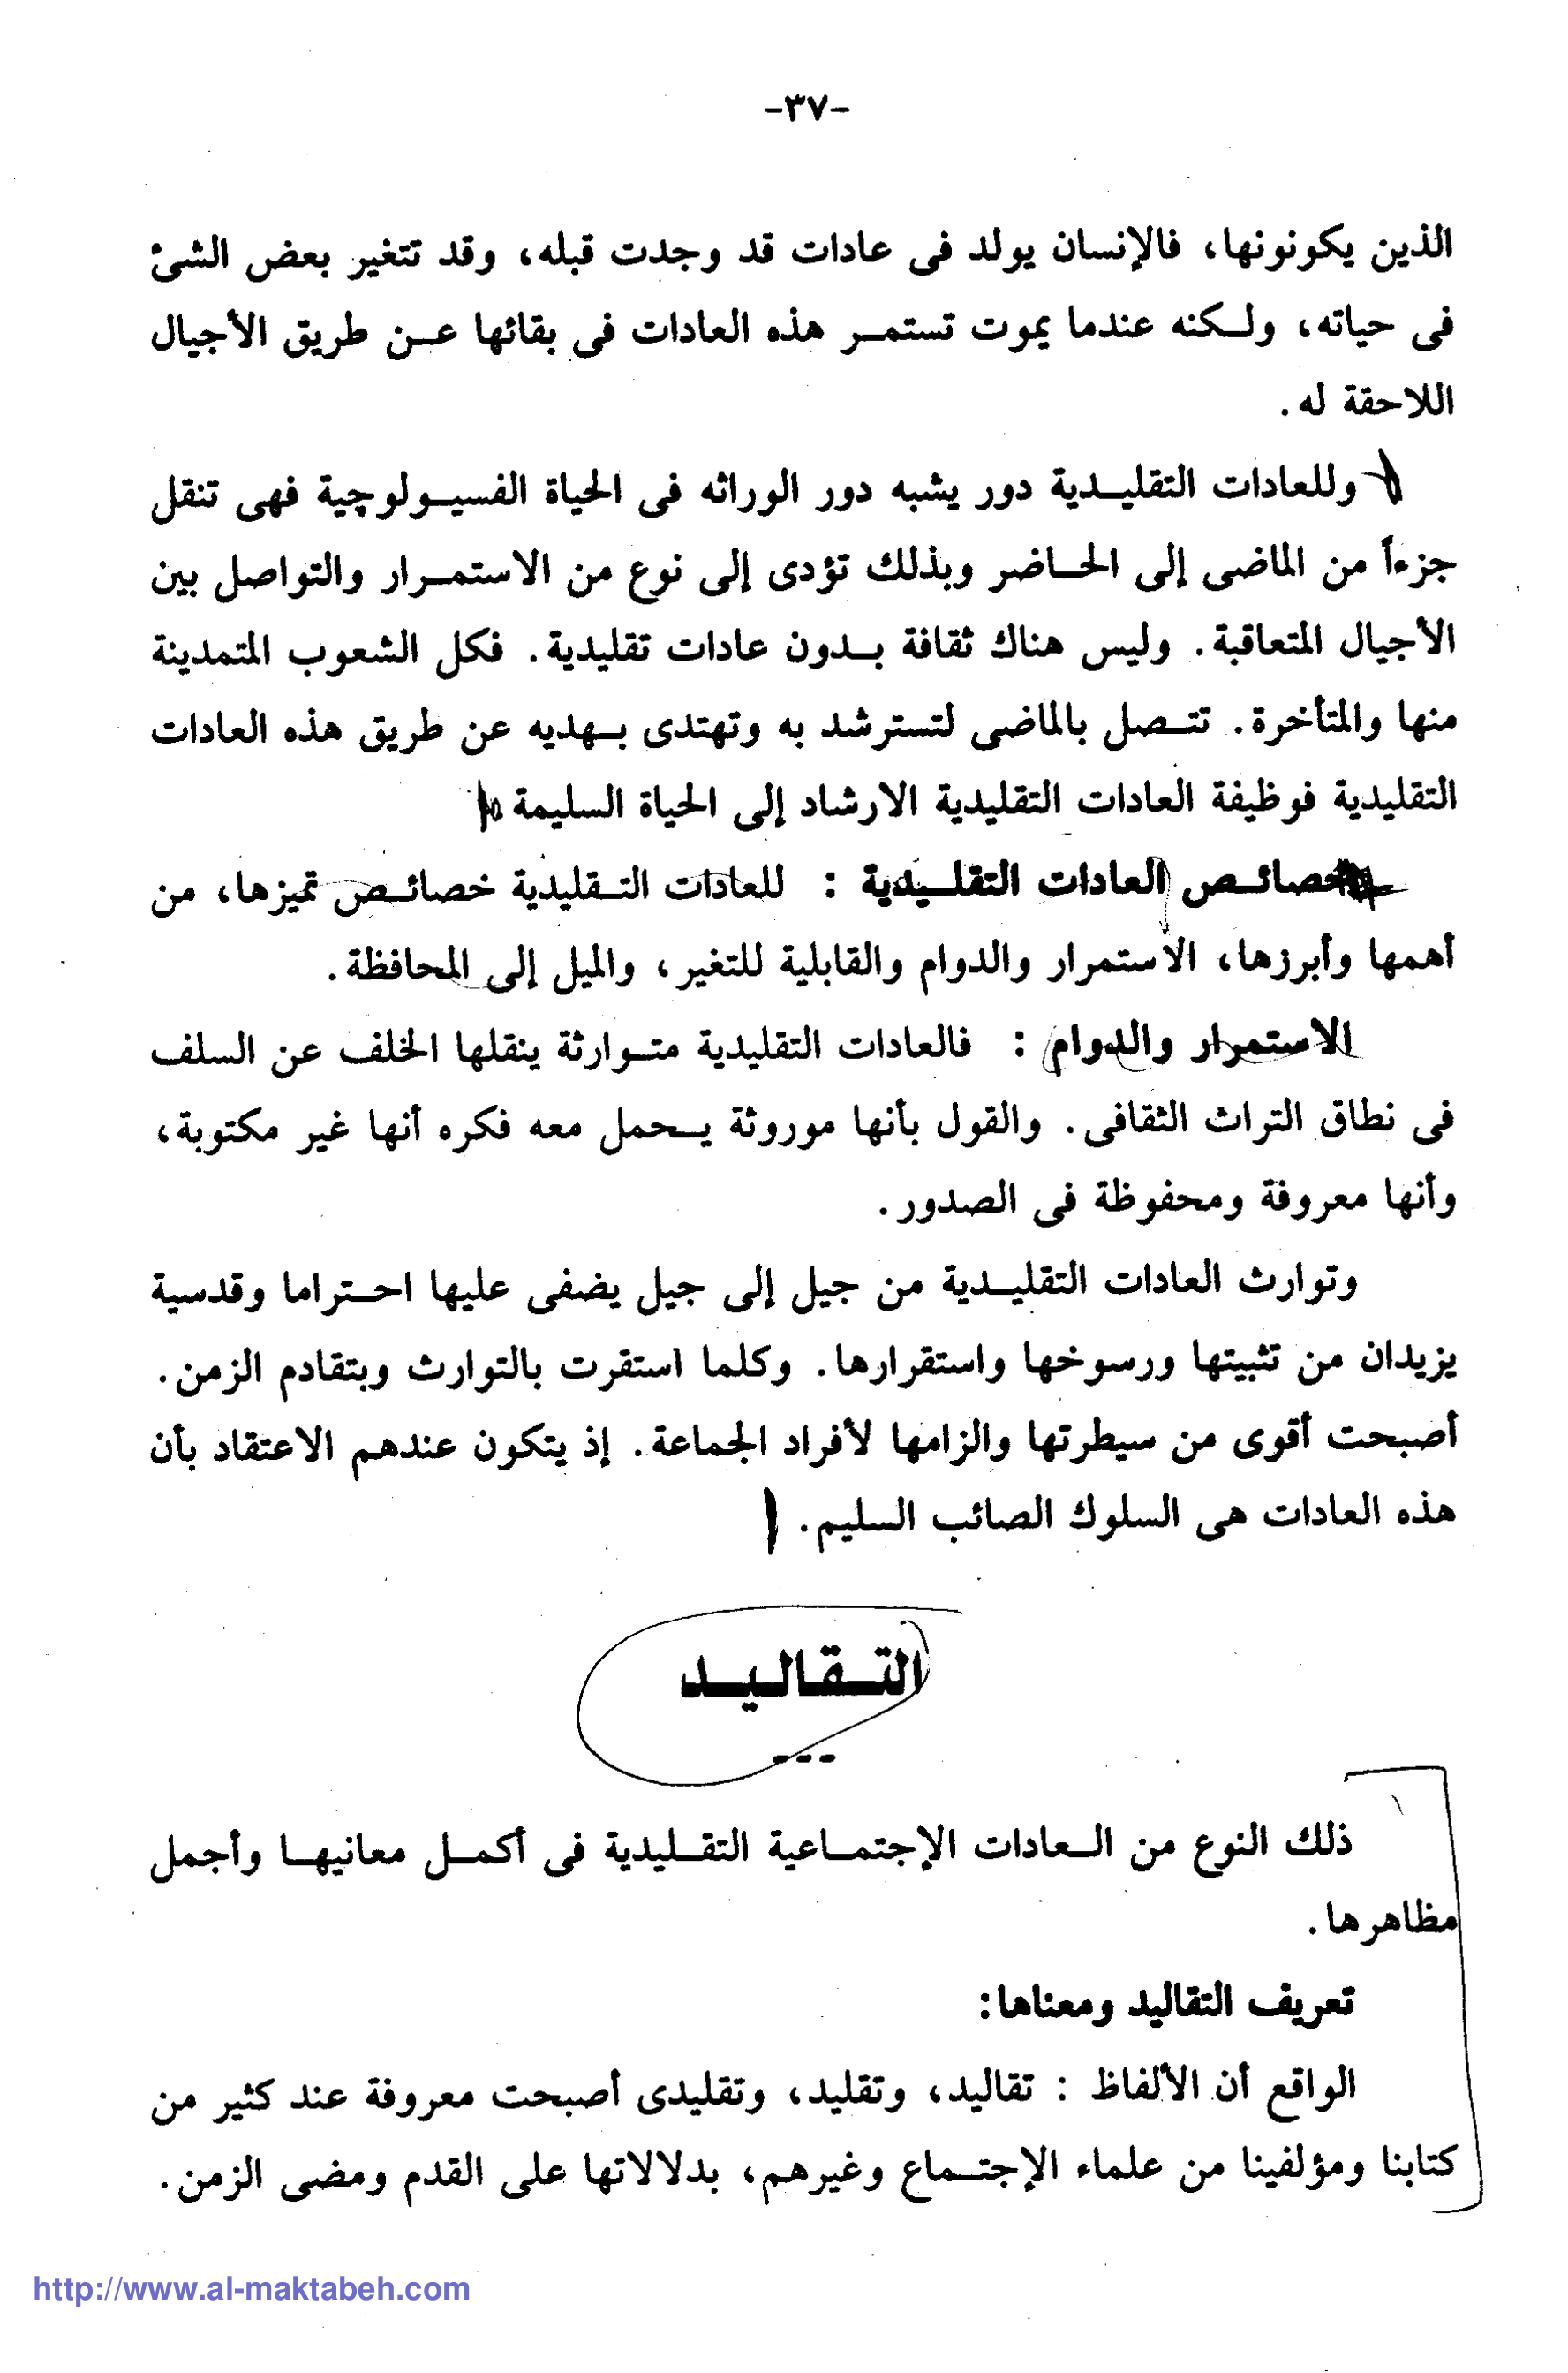 -٣٧-
الذين يكونونها، فالإنسان يولد فى عادات قد وجدت قبله، وقد تتغير بعض الشئ
فى حياته، ولكنه عندما يموت تستمر هذه العادات فى بقائها عن طريق الأجيال
اللاحقة له.
وللعادات التقليدية دور يشبه دور الوراثه فى الحياة الفسيولوچية فهى تنقل
جزءاً من الماضى إلى الحاضر وبذلك تؤدى إلى نوع من الاستمرار والتواصل بين
الأجيال المتعاقبة. وليس هناك ثقافة بدون عادات تقليدية. فكل الشعوب المتمدينة
منها والمتأخرة. تتصل بالماضى لتسترشد به وتهتدى بهديه عن طريق هذه العادات
التقليدية فوظيفة العادات التقليدية الارشاد إلى الحياة السليمة
خصائص العادات التقليدية : للعادات التقليدية خصائص تميزها، من
أهمها وأبرزها، الاستمرار والدوام والقابلية للتغير، والميل إلى المحافظة.
الاستمرار والدوام : فالعادات التقليدية متوارثة ينقلها الخلف عن السلف
فى نطاق التراث الثقافى. والقول بأنها موروثة يحمل معه فكره أنها غير مكتوبة،
وأنها معروفة ومحفوظة فى الصدور.
وتوارث العادات التقليدية من جيل إلى جيل يضفى عليها احتراما وقدسية
يزيدان من تثبيتها ورسوخها واستقرارها. وكلما استقرت بالتوارث وبتقادم الزمن.
أصبحت أقوى من سيطرتها والزامها لأفراد الجماعة. إذ يتكون عندهم الاعتقاد بأن
هذه العادات هى السلوك الصائب السليم.
التقاليد
---
ذلك النوع من العادات الإجتماعية التقليدية فى أكمل معانيها وأجمل
مظاهرها.
تعريف التقاليد ومعناها:
الواقع أن الألفاظ : تقاليد، وتقليد، وتقليدى أصبحت معروفة عند كثير من
كتابنا ومؤلفينا من علماء الإجتماع وغيرهم، بدلالاتها على القدم ومضى الزمن.
http://www.al-maktabeh.com